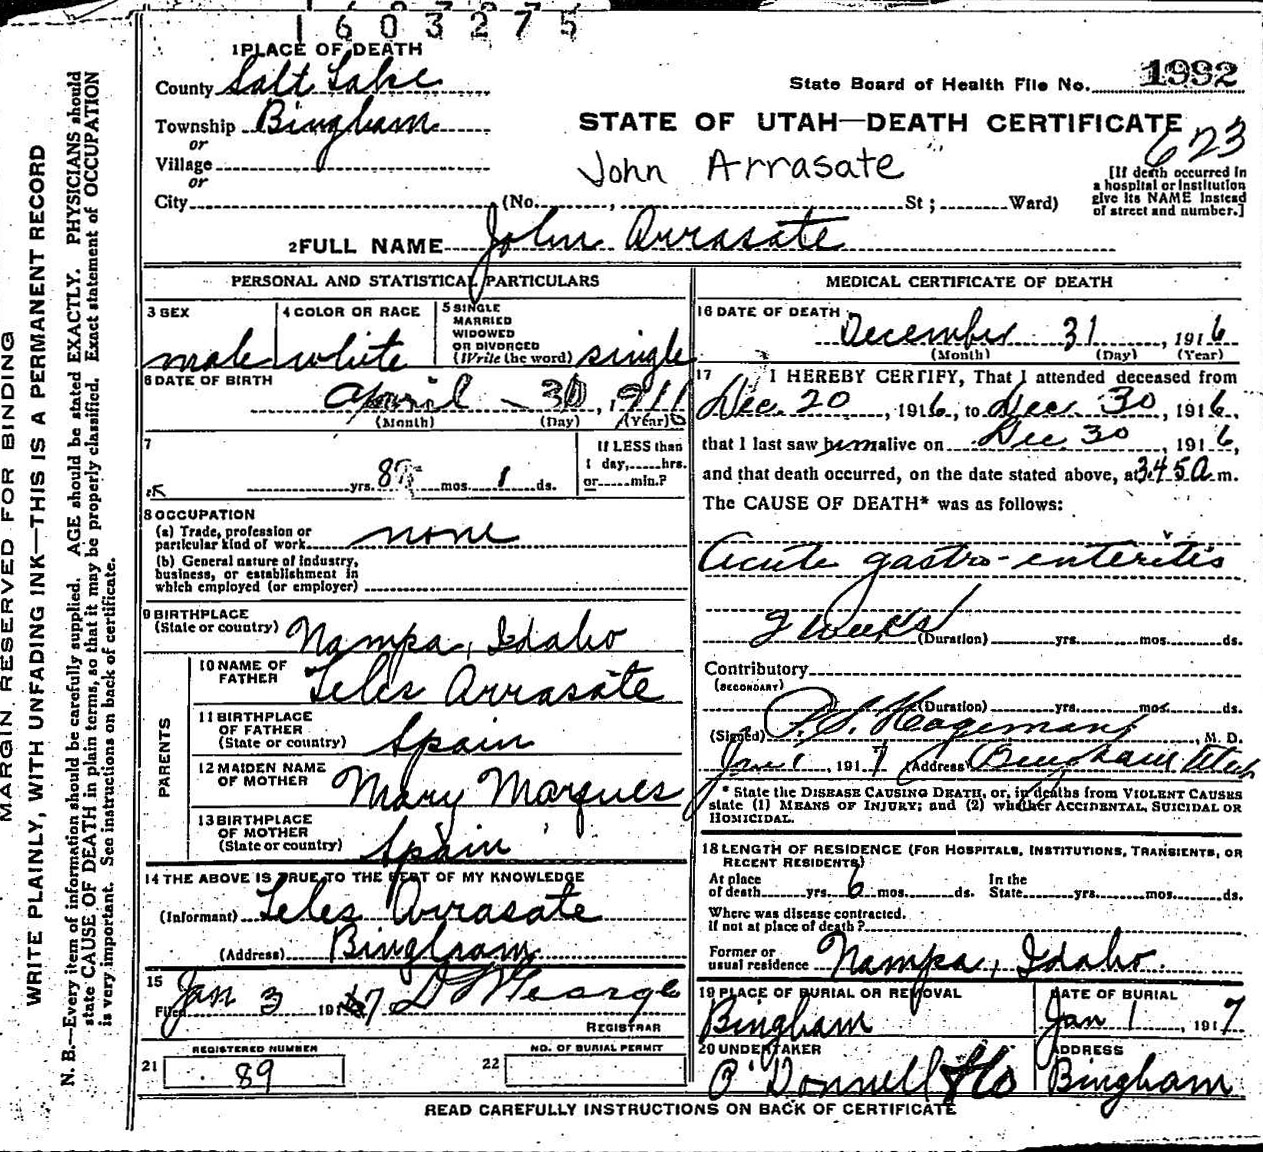 1603275
1 PLACE OF DEATH
County Salt Lake
State Board of Health File No. 1992
Township Bingham
or
STATE OF UTAH—DEATH CERTIFICATE
623
Village
or
John Arrasate
[If death occurred in
a hospital or institution
give its NAME instead
of street and number.]
City (No. , St ; Ward)
2 FULL NAME John Arrasate
PERSONAL AND STATISTICAL PARTICULARS
3 SEX male
4 COLOR OR RACE white
5 SINGLE
MARRIED
WIDOWED
OR DIVORCED
(Write the word) single
6 DATE OF BIRTH
April 30, 1916
(Month) (Day) (Year)
7
yrs. 8 mos. 1 ds.
If LESS than
1 day, hrs.
or min.?
8 OCCUPATION
(a) Trade, profession or
particular kind of work none
(b) General nature of industry,
business, or establishment in
which employed (or employer)
9 BIRTHPLACE
(State or country) Nampa, Idaho
PARENTS
10 NAME OF
FATHER Teles Arrasate
11 BIRTHPLACE
OF FATHER
(State or country) Spain
12 MAIDEN NAME
OF MOTHER Mary Marques
13 BIRTHPLACE
OF MOTHER
(State or country) Spain
14 THE ABOVE IS TRUE TO THE BEST OF MY KNOWLEDGE
(Informant) Teles Arrasate
(Address) Bingham
15
Filed Jan 3 1917
REGISTRAR
REGISTERED NUMBER
21 89
NO. OF BURIAL PERMIT
22
MEDICAL CERTIFICATE OF DEATH
16 DATE OF DEATH
December 31, 1916
(Month) (Day) (Year)
17 I HEREBY CERTIFY, That I attended deceased from
Dec. 20, 1916, to Dec. 30, 1916,
that I last saw him alive on Dec 30, 1916,
and that death occurred, on the date stated above, at 3.45 a m.
The CAUSE OF DEATH* was as follows:
Acute gastro-enteritis
2 weeks
(Duration) yrs. mos. ds.
Contributory
(SECONDARY)
(Duration) yrs. mos. ds.
(Signed) P. S. Hageman, M. D.
Jan 1, 1917 (Address) Bingham Utah
* State the DISEASE CAUSING DEATH, or, in deaths from VIOLENT CAUSES
state (1) MEANS OF INJURY; and (2) whether ACCIDENTAL, SUICIDAL OR
HOMICIDAL.
18 LENGTH OF RESIDENCE (FOR HOSPITALS, INSTITUTIONS, TRANSIENTS, OR
RECENT RESIDENTS)
At place
of death yrs. 6 mos. ds.
In the
State yrs. mos. ds.
Where was disease contracted.
If not at place of death?
Former or
usual residence Nampa, Idaho.
19 PLACE OF BURIAL OR REMOVAL
Bingham
DATE OF BURIAL
Jan 1, 1917
20 UNDERTAKER
O'Donnell & Co
ADDRESS
Bingham
READ CAREFULLY INSTRUCTIONS ON BACK OF CERTIFICATE
MARGIN RESERVED FOR BINDING
WRITE PLAINLY, WITH UNFADING INK—THIS IS A PERMANENT RECORD
N. B.—Every item of information should be carefully supplied. AGE should be stated EXACTLY. PHYSICIANS should
state CAUSE OF DEATH in plain terms, so that it may be properly classified. Exact statement of OCCUPATION
is very important. See instructions on back of certificate.